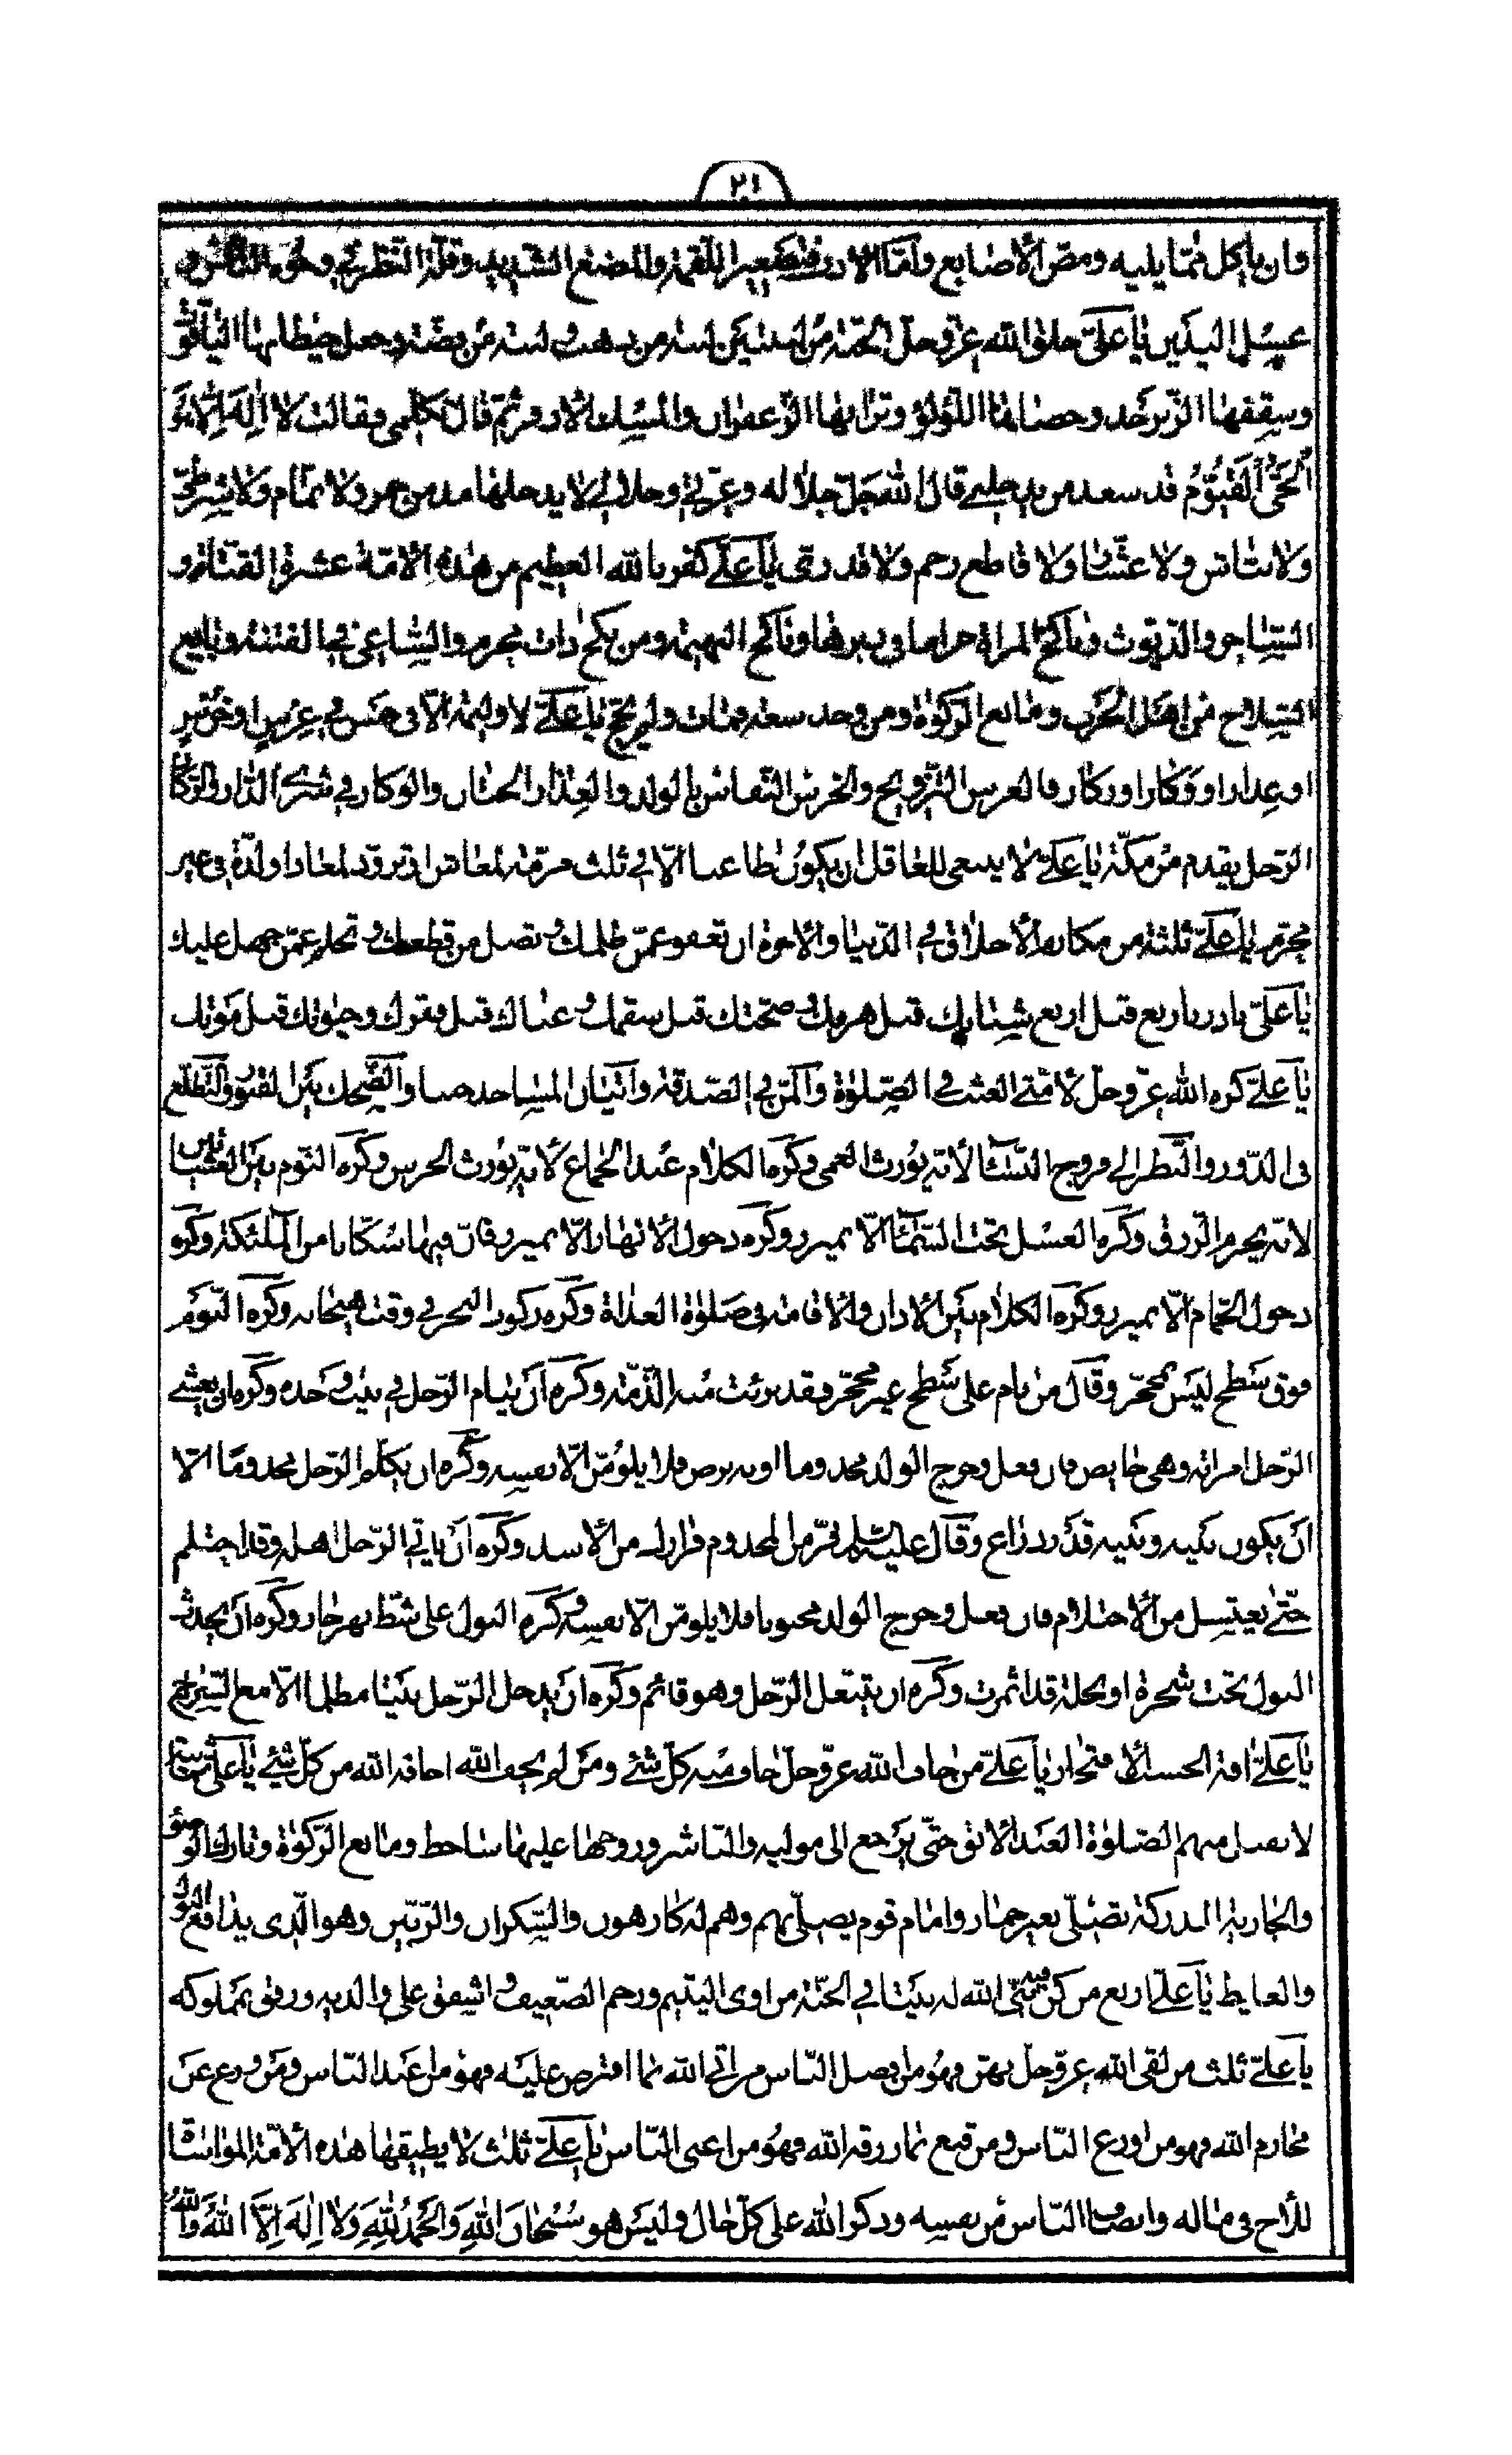 ٢١
وان ياكل ممّا يليه ومصّ الأصابع وأمّا الادب فتصغير اللّقمة والمضغ الشديد وقلّة النّظر في وجوه النّاس و
غسل اليدين يا عليّ خلق الله عزّ وجلّ الجنّة من لبنتين لبنة من ذهب ولبنة من فضّة وجعل حيطانها الياقوت
وسقفها الزّبرجد وحصاها اللّؤلؤ وترابها الزّعفران والمسك الأذفر ثمّ قال لها تكلّمي فقالت لا إله إلّا هو
الحيّ القيّوم قد سعد من يدخلني قال الله جلّ جلاله وعزّتي وجلالي لا يدخلها مدمن خمر ولا نمّام ولا شرطيّ
ولا نبّاش ولا عشّار ولا قاطع رحم ولا قدريّ يا عليّ كفر بالله العظيم من هذه الأمّة عشرة القتّات و
السّاحر والدّيّوث وناكح المرأة حراما في دبرها وناكح البهيمة ومن نكح ذات محرم والساعي في الفتنة وبايع
السّلاح من اهل الحرب ومانع الزّكوة ومن وجد سعة فمات ولم يحجّ يا عليّ لا وليمة الّا في خمس في عرس او خرس
او عذار او وكار او ركاز فالعرس التّزويج والخرس النّفاس بالولد والعذار الختان والوكار في شرى الدّار والرّكاز
الرّجل يقدم من مكّة يا عليّ لا ينبغي للعاقل ان يكون ظاعنا الّا في ثلث مرمّة لمعاش او تزوّد لمعاد او لذّة في غير
محرّم يا عليّ ثلثة من مكارم الأخلاق في الدّنيا والاخرة ان تعفو عمّن ظلمك وتصل من قطعك وتحلم عمّن جهل عليك
يا عليّ بادر بأربع قبل اربع شبابك قبل هرمك وصحّتك قبل سقمك وغناك قبل فقرك وحيوتك قبل موتك
يا عليّ كره الله عزّ وجلّ لأمّتي العبث في الصّلوة والمنّ في الصّدقة واتيان المساجد جنبا والضّحك بين القبور والتّطلّع
في الدّور والنّظر الى فروج النّساء لأنّه يورث العمى وكره الكلام عند الجماع لأنّه يورث الخرس وكره النّوم بين العشائين
لانّه يحرم الرّزق وكره الغسل تحت السّماء الّا بميزر وكره دخول الأنهار الّا بميزر فانّ فيها سكّانا من الملئكة وكره
دخول الحمّام الّا بميزر وكره الكلام بين الاذان والأقامة في صلوة الغداة وكره ركوب البحر في وقت هيجانه وكره النّوم
فوق سطح ليس بمحجّر وقال من نام على سطح غير محجّر فقد برئت منه الذّمّة وكره أن ينام الرّجل في بيت وحده وكره ان يغشى
الرّجل امراته وهي حايض فان فعل وخرج الولد مجذوما او به برص فلا يلومنّ الّا نفسه وكره ان يكلّم الرّجل مجذوما الّا
أن يكون بينه وبينه قدر ذراع وقال عليه السّلم فرّ من المجذوم فرارك من الأسد وكره أن ياتي الرّجل اهله وقد احتلم
حتّى يغتسل من الأحتلام فان فعل وخرج الولد مجنونا فلا يلومنّ الّا نفسه وكره البول على شطّ نهر جار وكره ان يحدث
البول تحت شجرة او نخلة قد اثمرت وكره ان يتنعّل الرّجل وهو قائم وكره ان يدخل الرّجل بيتا مظلما الّا مع السّراج
يا عليّ افة الحسب الأفتخار يا عليّ من خاف الله عزّ وجلّ خاف منه كلّ شئ ومن لم يخف الله اخافه الله من كلّ شئ يا عليّ ثمانية
لا يقبل منهم الصّلوة العبد الأبق حتّى يرجع الى موليه والنّاشز وزوجها عليها ساخط ومانع الزّكوة وتارك الوضوء
والجارية المدركة تصلّي بغير خمار وامام قوم يصلّي بهم وهم له كارهون والسّكران والزّبّين وهو الّذي يدافع البول
والغايط يا عليّ اربع من كنّ فيه بنى الله له بيتا في الجنّة من اوى اليتيم ورحم الضّعيف واشفق على والديه ورفق بمملوكه
يا عليّ ثلث من لقى الله عزّ وجلّ بهنّ فهو من افضل النّاس من اتى الله بما افترض عليه فهو من اعبد النّاس ومن ورع عن
محارم الله فهو من اورع النّاس ومن قنع بما رزقه الله فهو من اغنى النّاس يا عليّ ثلاث لا يطيقها هذه الأمّة المواساة
للأخ في ماله وانصاف النّاس من نفسه وذكر الله على كلّ حال وليس هو سبحان الله والحمد لله ولا إله إلّا الله والله